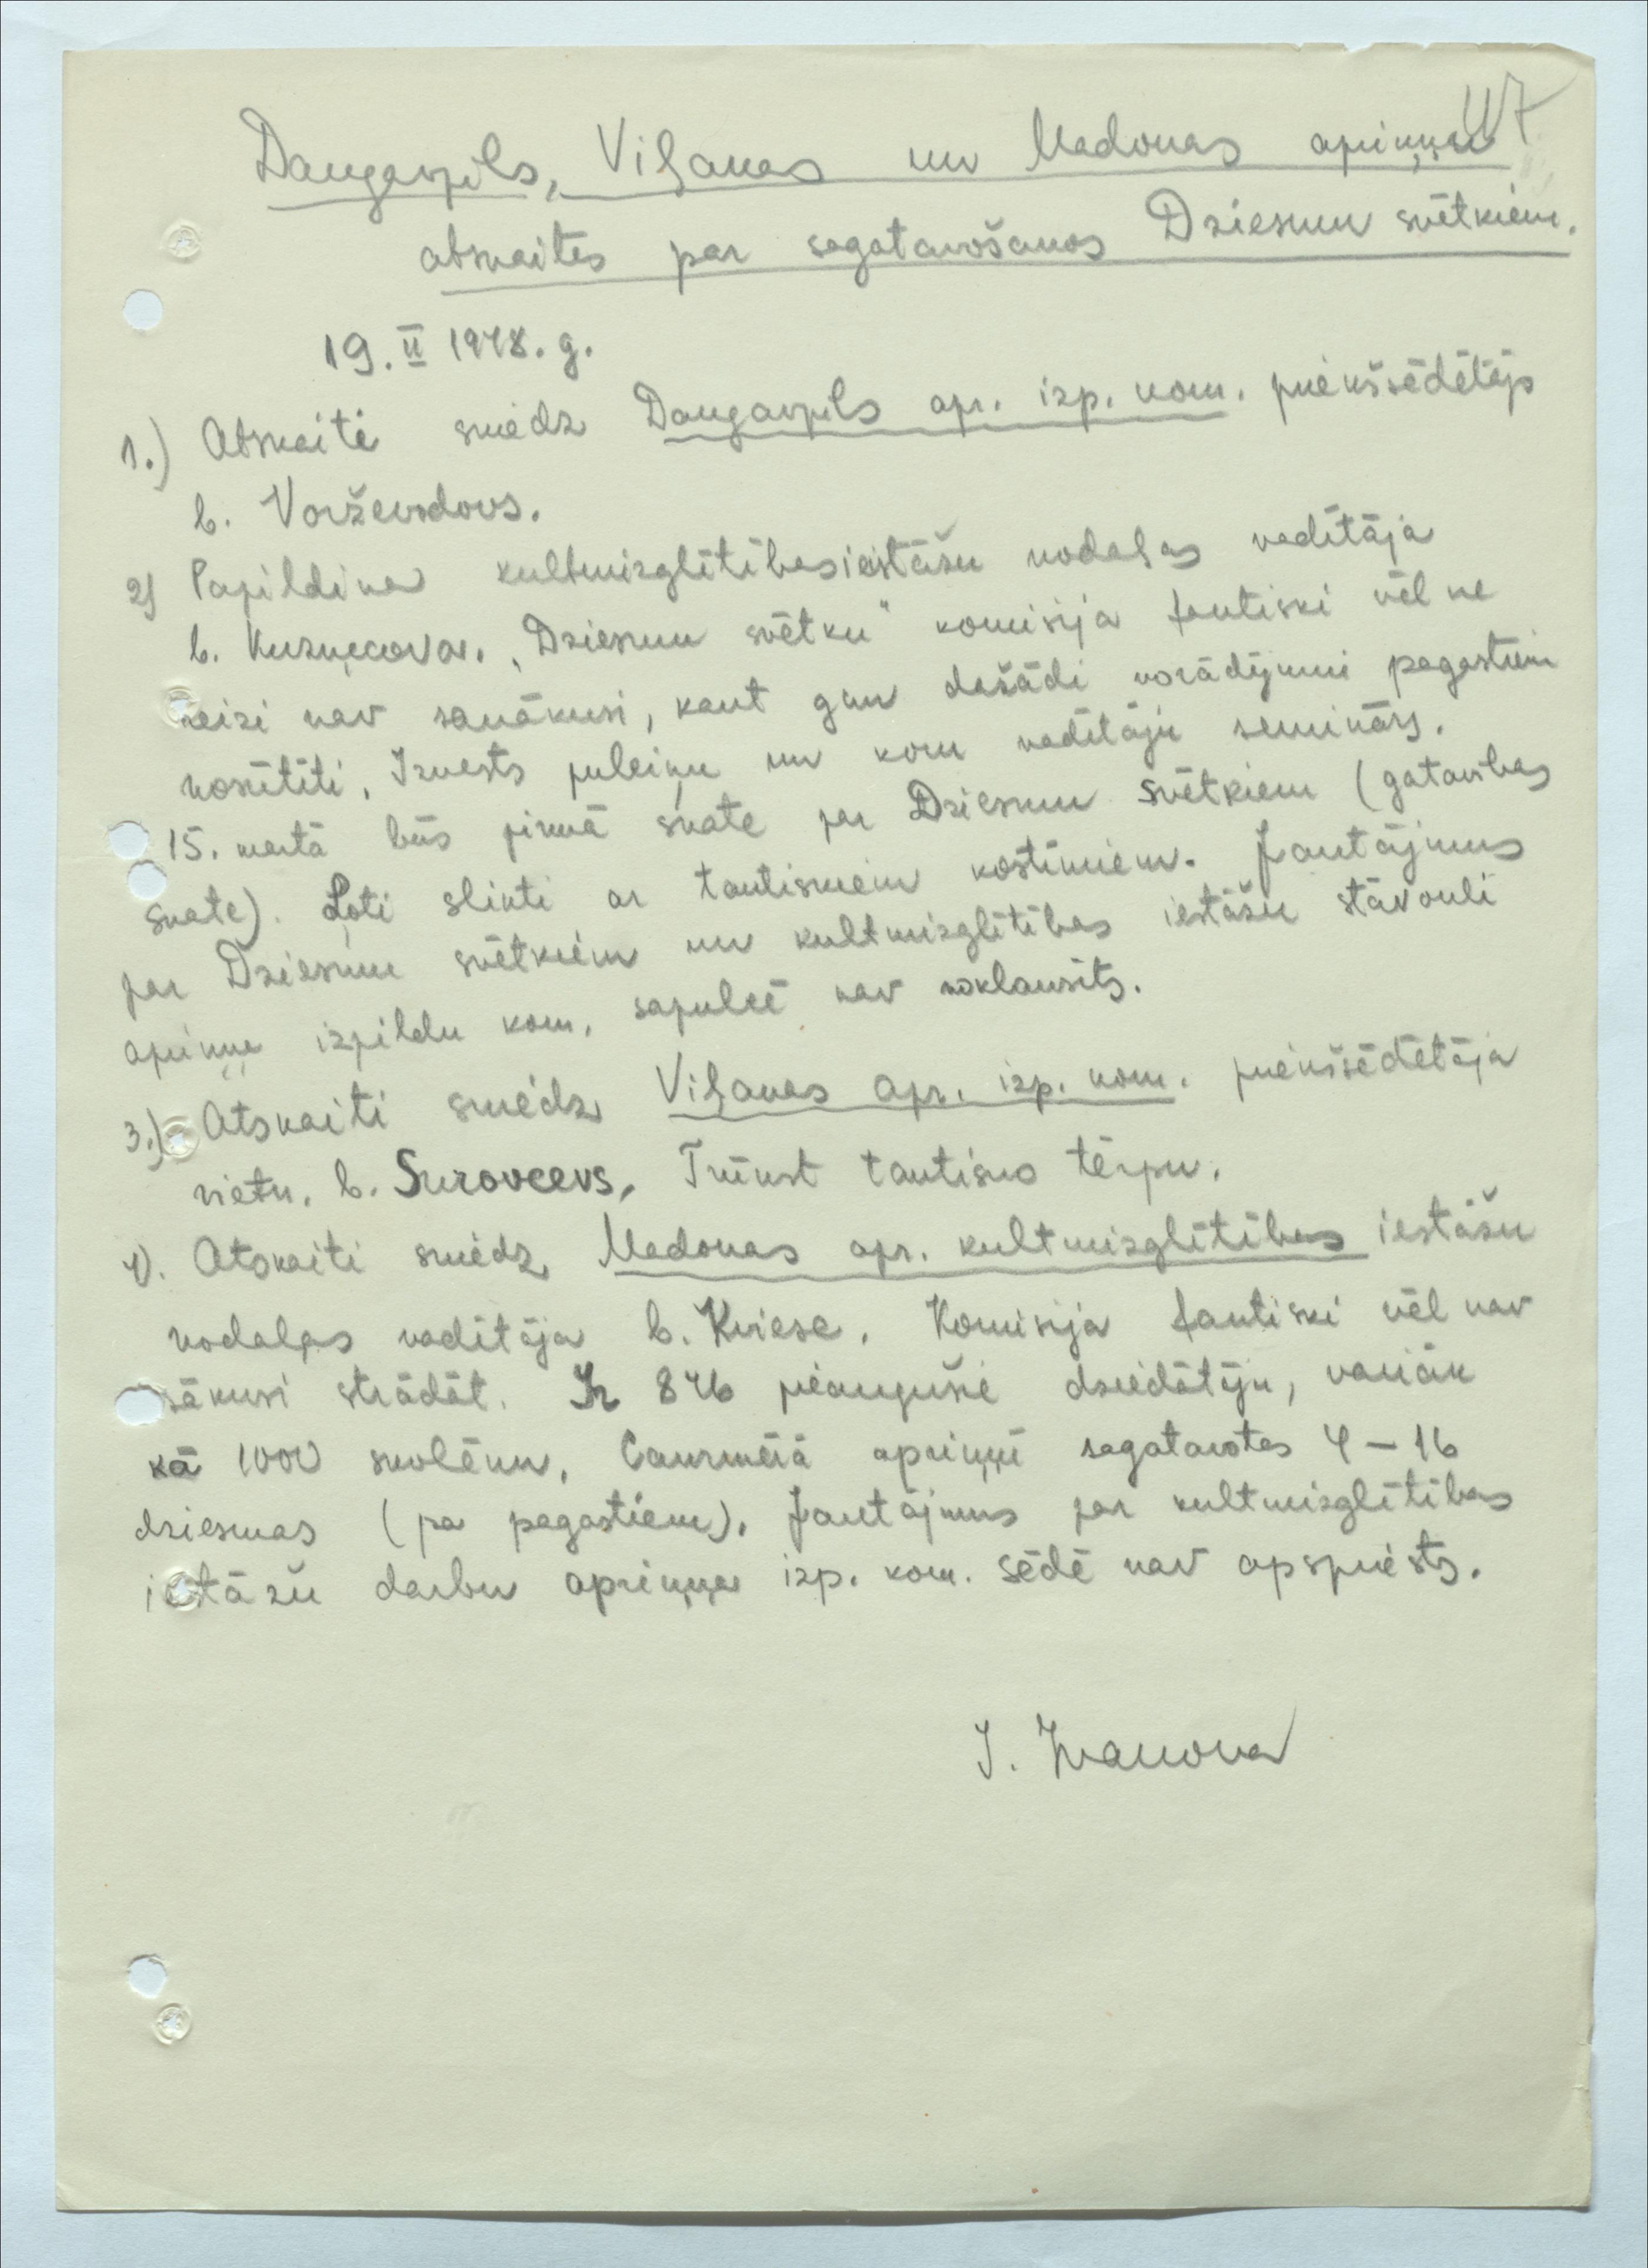 117
Daugavpils, Viļakas un Madonas apriņķu
atskaites par sagatavošanos Dziesmu svētkiem.
19. II 1948. g.
1.) Atskaiti sniedz Daugavpils apr. izp. kom. priekšsēdētājs
b.
2) Papildina kulturizglītības iestāžu nodaļas vadītāja
b. Kuzņecova. „Dziesmu svētku" komisija faktiski vēl ne
reizi nav sanākusi, kaut gan dažādi norādījumi pagastiem
nosūtīti. Izvests pulciņu un koru vadītāju seminārs.
15. martā būs pirmā skate par Dziesmu svētkiem (gatavības
skate). Ļoti slikti ar tautiskiem kostīmiem. Jautājums
par Dziesmu svētkiem un kulturizglītības iestāžu stāvokli
apriņķu izpildu kom. sapulcē nav noklausīts.
3.) Atskaiti sniedz Viļakas apr. izp. kom. priekšsēdētāja
vietn. b. Surovcevs. Trūkst tautisko tērpu.
4). Atskaiti sniedz Madonas apr. kulturizglītības iestāžu
nodaļas vadītāja b. Kviese. Komisija faktiski vēl nav
sākusi strādāt. Ir 846 pieaugušie dziedātāju, vairāk
kā 1000 skolēnu. Caurmērā apriņķī sagatavotas 4 – 16
dziesmas (pa pagastiem). Jautājums par kulturizglītības
iestāžu darbu apriņķa izp. kom. sēdē nav apspriests.
I. Ivanova